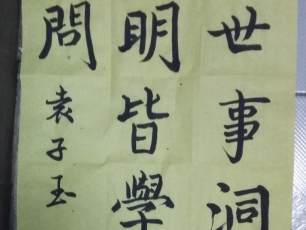 世事洞
明皆學
問
袁子玉